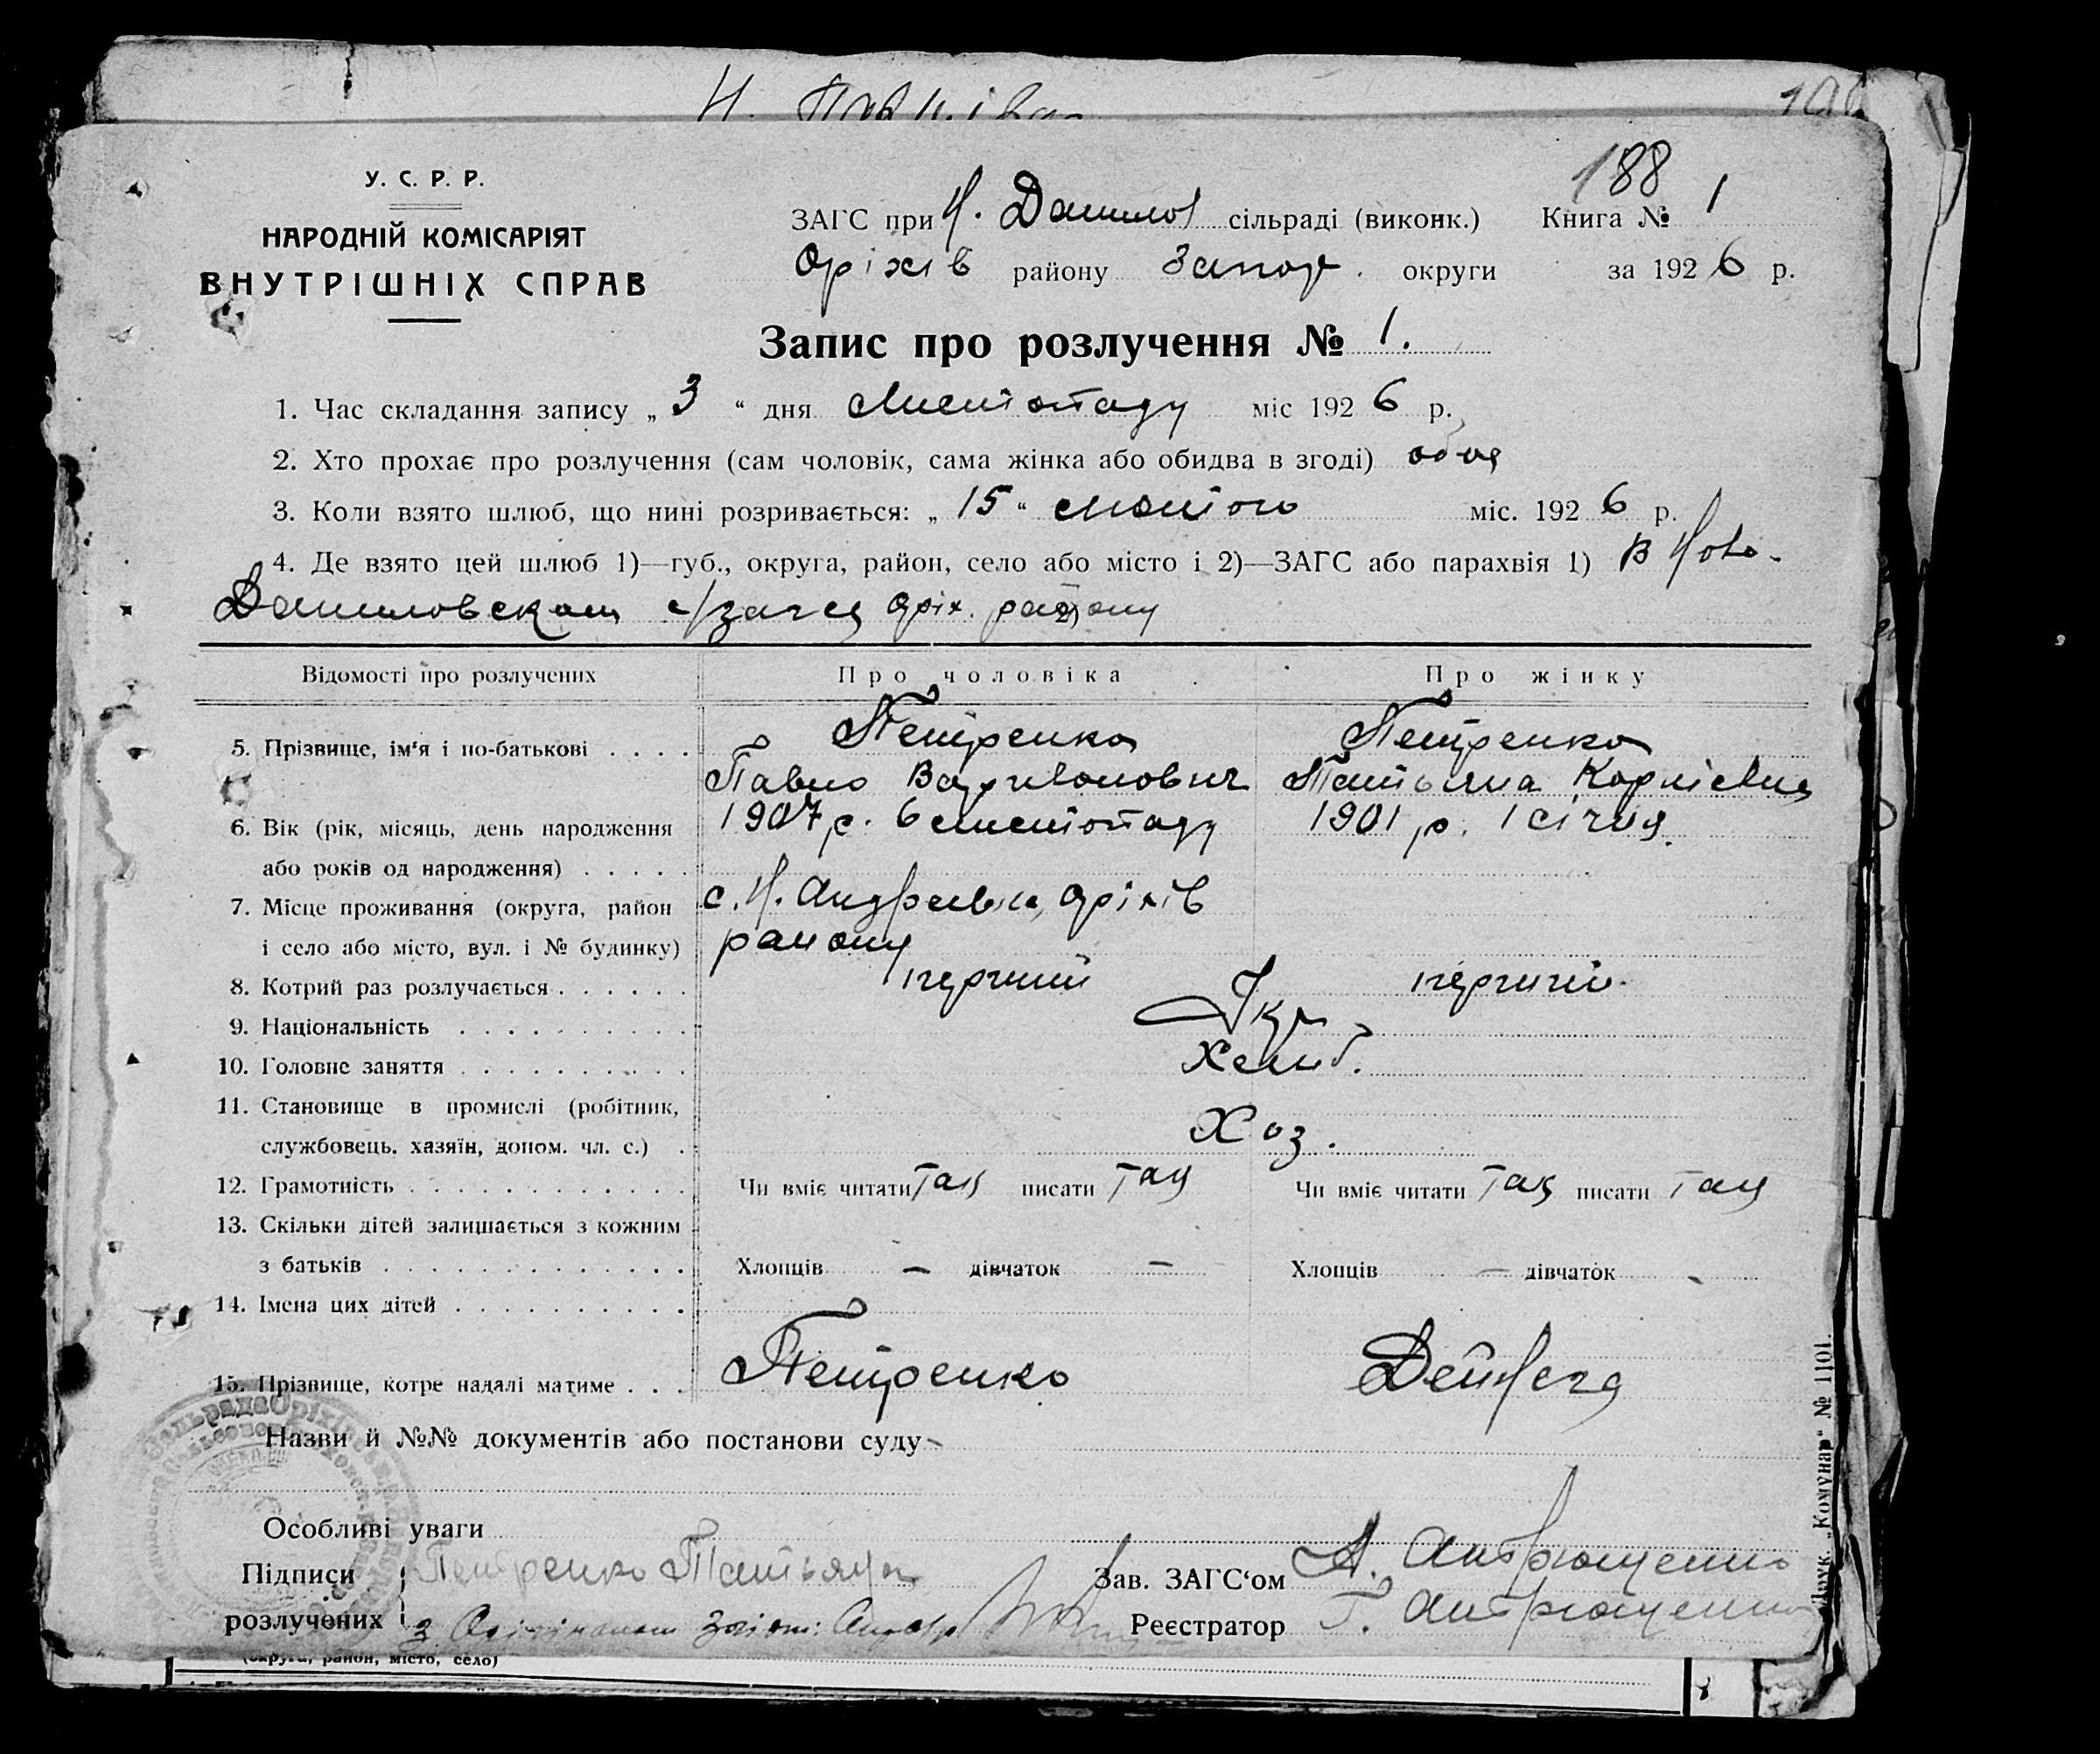 188
У. С. Р. Р.
НАРОДНІЙ КОМІСАРІЯТ
ВНУТРІШНІХ СПРАВ
ЗАГС при Н. Данилов сільраді (виконк.) Книга № 1
Оріхів району Запор. округи за 1926 р.
Запис про розлучення № 1.
1. Час складання запису „ 3 “ дня Листопаду міс 1926 р.
2. Хто прохає про розлучення (сам чоловік, сама жінка або обидва в згоді) обоя
3. Коли взято шлюб, що нині розривається: „ 15 “ лютого міс. 1926 р.
4. Де взято цей шлюб 1)—губ., округа, район, село або місто і 2)—ЗАГС або парахвія 1) В Ново-
Даниловском с/загсу Оріх. району 2)
Відомості про розлучених Про чоловіка Про жінку
5. Прізвище, ім‘я і по-батькові Петренко Петренко
Павло Татьяна Корніевна
6. Вік (рік, місяць, день народження 1907 р. 6 листопаду 1901 р. 1 січня
або років од народження)
7. Місце проживання (округа, район с. Н. Андреевка, Оріхів
і село або місто, вул. і № будинку) району
8. Котрий раз розлучається перший перший
9. Національність Укр
10. Головне заняття Хліб.
11. Становище в промислі (робітник,
службовець, хазяїн, допом. чл. с.) Хоз.
12. Грамотність Чи вміє читати так писати так Чи вміє читати так писати так
13. Скільки дітей залишається з кожним
з батьків Хлопців — дівчаток — Хлопців — дівчаток -
14. Імена цих дітей
15. Прізвище, котре надалі матиме Петренко
Назви й №№ документів або постанови суду -
Особливі уваги
Підписи Петренко Татьяна Зав. ЗАГС‘ом А.
розлучених з Реєстратор Г.
(округа, район, місто, село)
Друк. „Комунар“ № 1101.